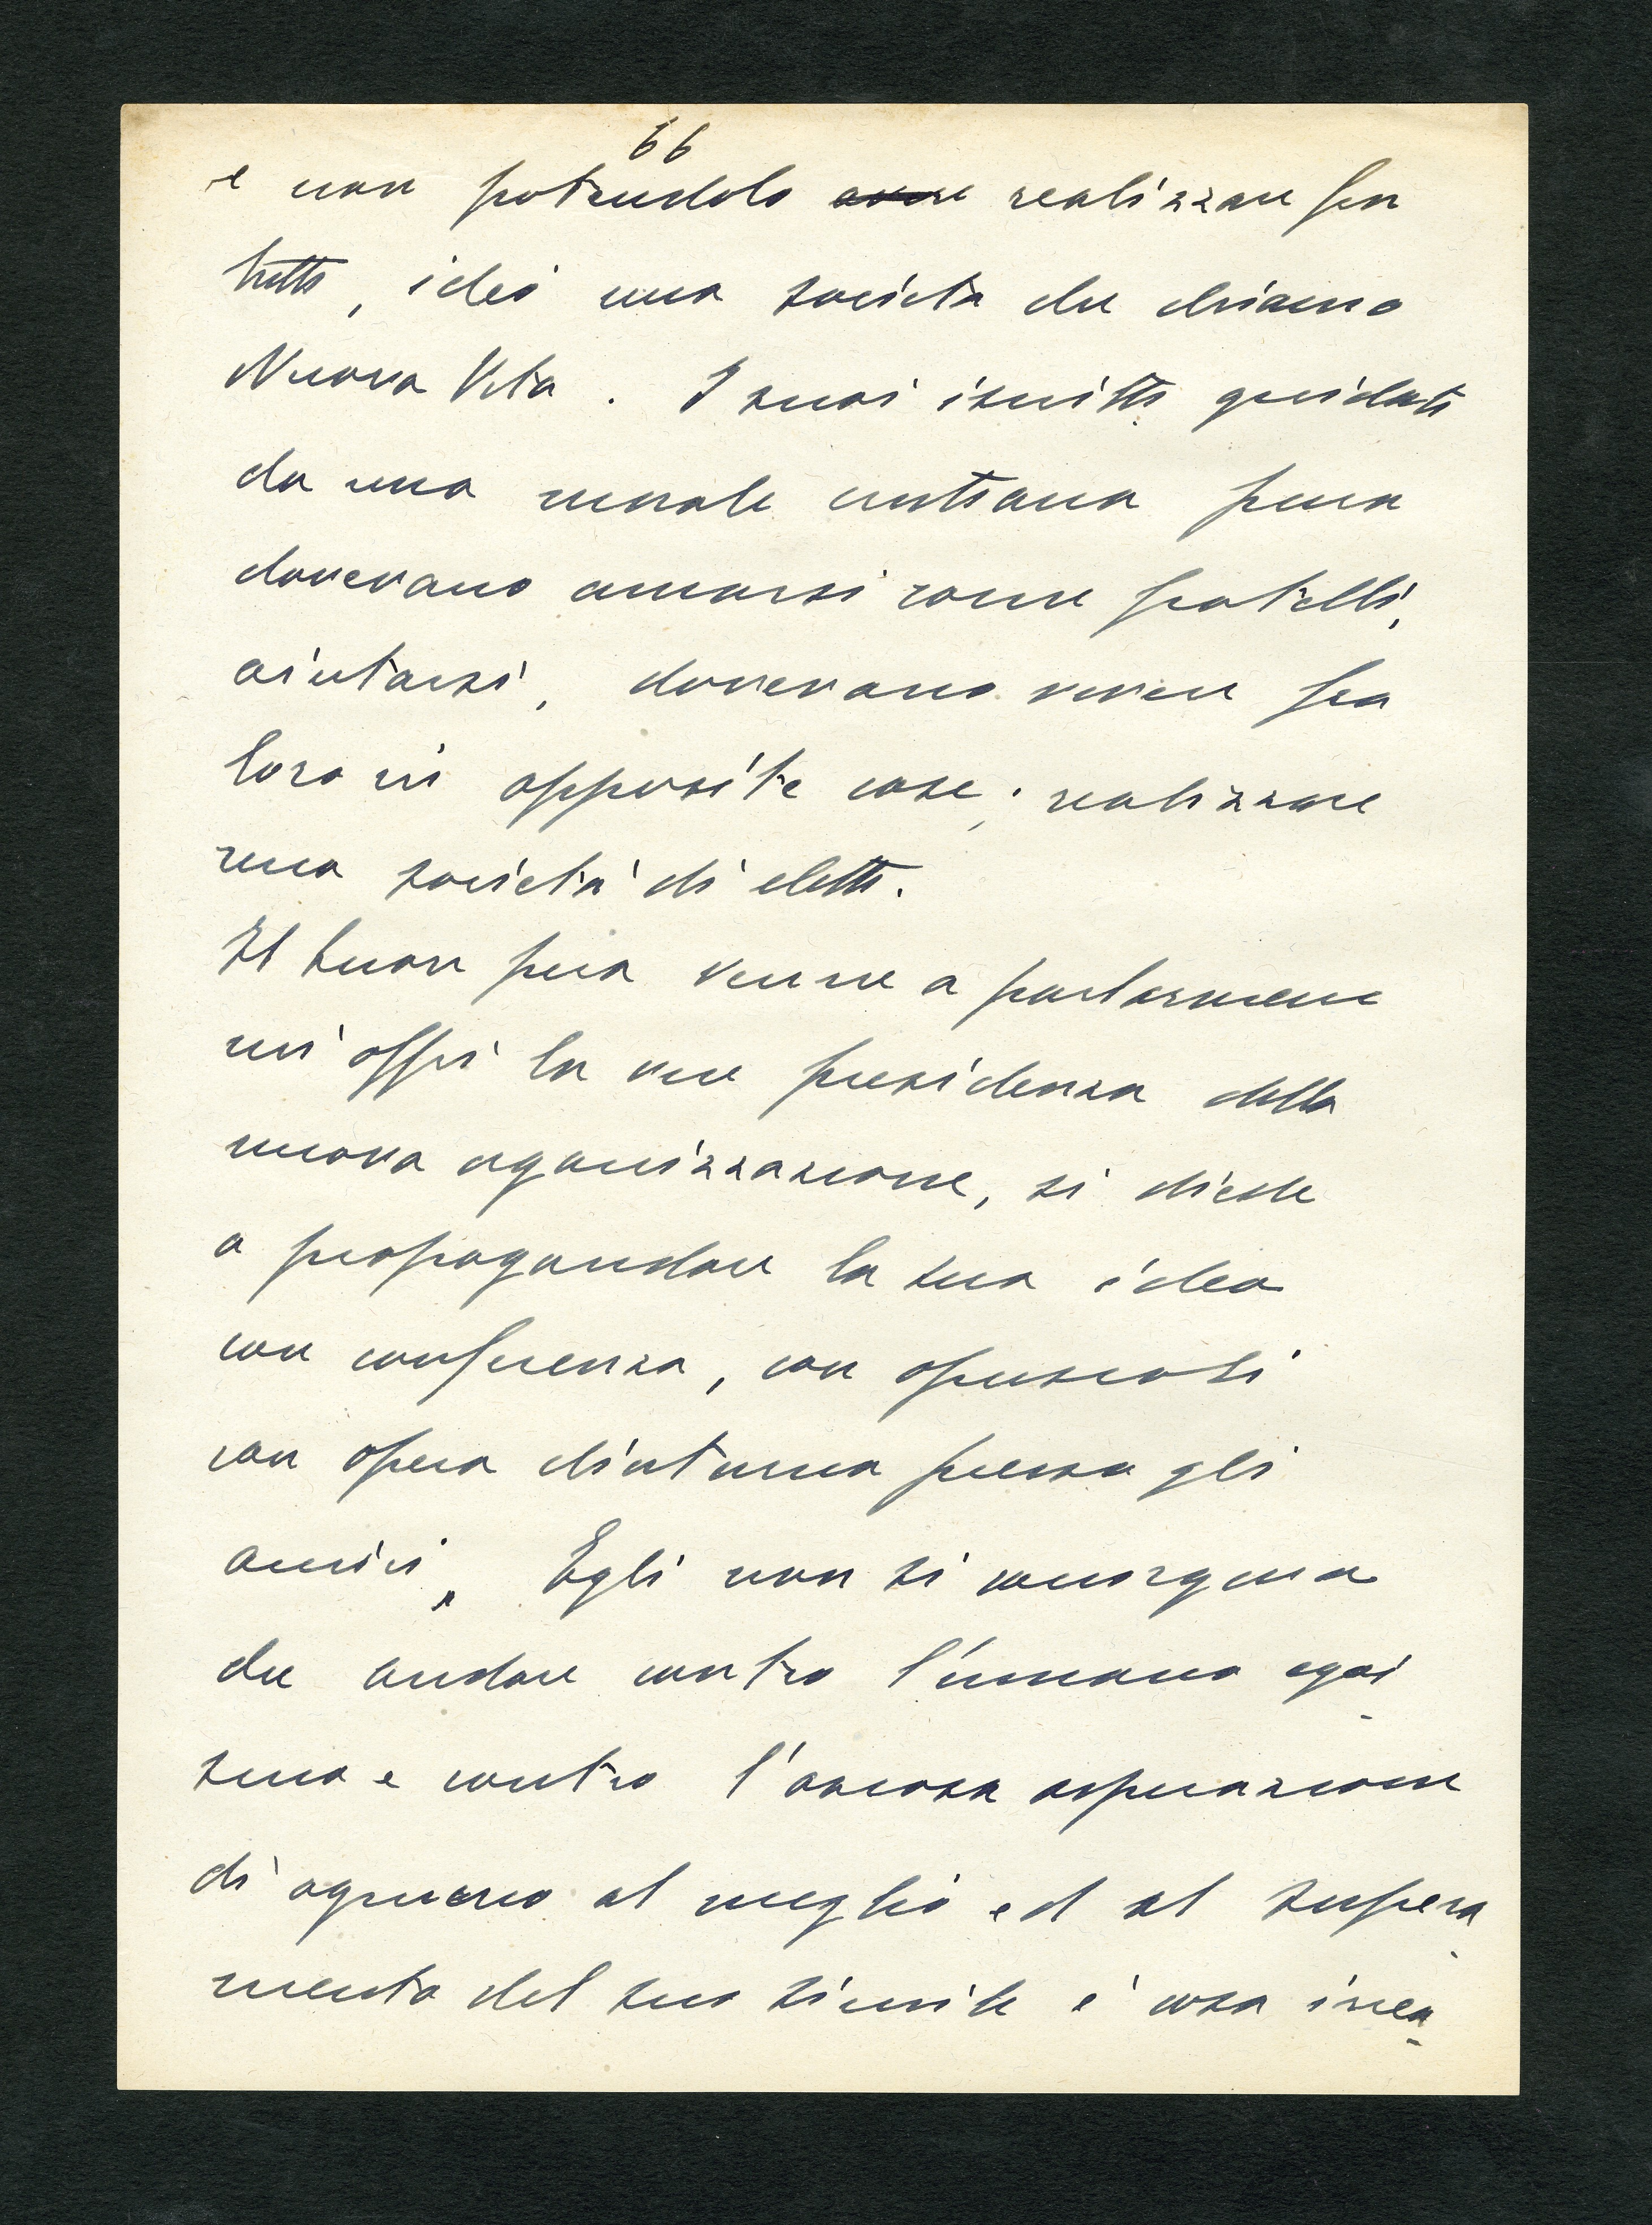 66
e non potendolo realizzare per
tutti, ideò una società che chiamò
Nuova Vita. I suoi iscritti guidati
da una morale cristiana pura
dovevano amarsi come fratelli,
aiutarsi, dovevano vivere fra
loro in apposite case; realizzare
una società di eletti.
Il buon venne a parlarmene
mi offrì la vice presidenza della
nuova organizzazione, si diede
a propagandare la sua idea
con conferenza, con opuscoli
con opera diuturna presso gli
amici. Egli non si accorgeva
che andare contro l'umano egoi
smo e contro l'ascosa aspirazione
di ognuno al meglio ed al supera
mento del suo simile è cosa irrea